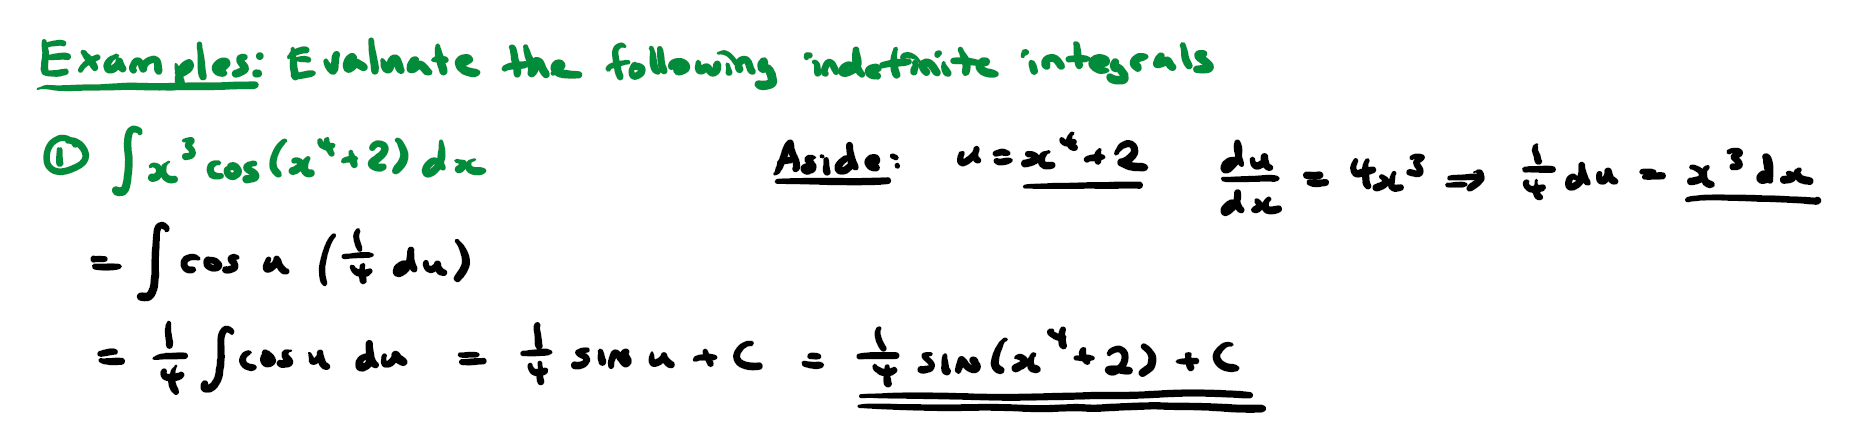 Examples: Evaluate the following indefinite integrals
① ∫ x³ cos(x⁴+2) dx    Aside: u = x⁴+2    du/dx = 4x³ ⇒ 1/4 du = x³ dx
= ∫ cos u (1/4 du)
= 1/4 ∫ cos u du = 1/4 sin u + C = 1/4 sin(x⁴+2) + C